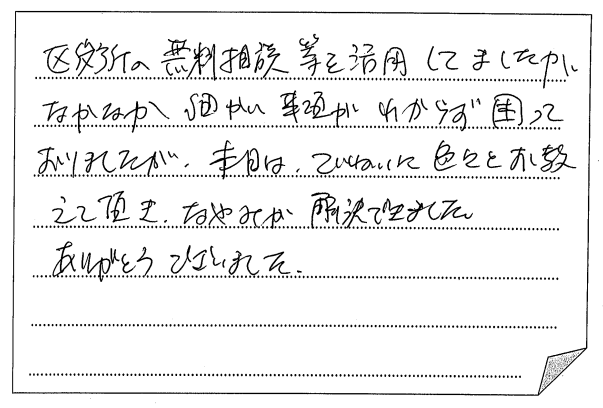 区役所の無料相談等を活用してましたが
なかなか細かい事項がわからず困って
おりましたが、本日は、ていねいに色々とお教
えて頂き、なやみが解決できました。
ありがとうございました。